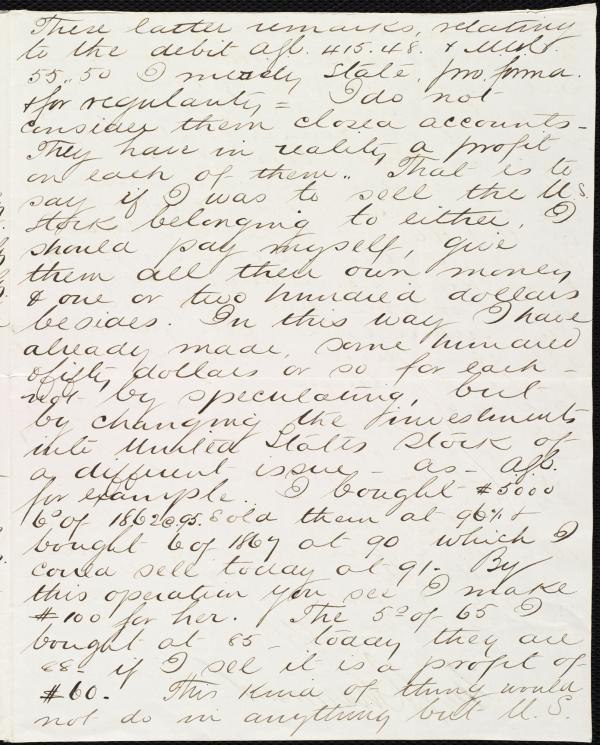 These latter remarks, relating
to the debit afb. 415.48. & Mist.
55..50 I merely state, pro. forma.
& for regularity = I do not
consider them closed accounts -
They have in reality a profit
on each of them.. That is to
say if I was to sell the U.S.
stock belonging to either, I
should pay myself, give
them all their own money
& one or two hundred dollars
besides. In this way I have
already made, some hundred
& fifty dollars or so for each -
not by speculating, but
by changing the investments
into United States Stock of
a different issue - as - afb.
for example.. I bought $5000
6s of 1862 @ 95. Sold them at 96 1/2 &
bought 6 of 1867 at 90 which I
could sell today at 91. By
this operation you see I make
$100 for her. The 5s of 65 I
bought at 85 - today they are
88 - if I sell it is a profit of
$60. This kind of thing would
not do in anything but U.S.